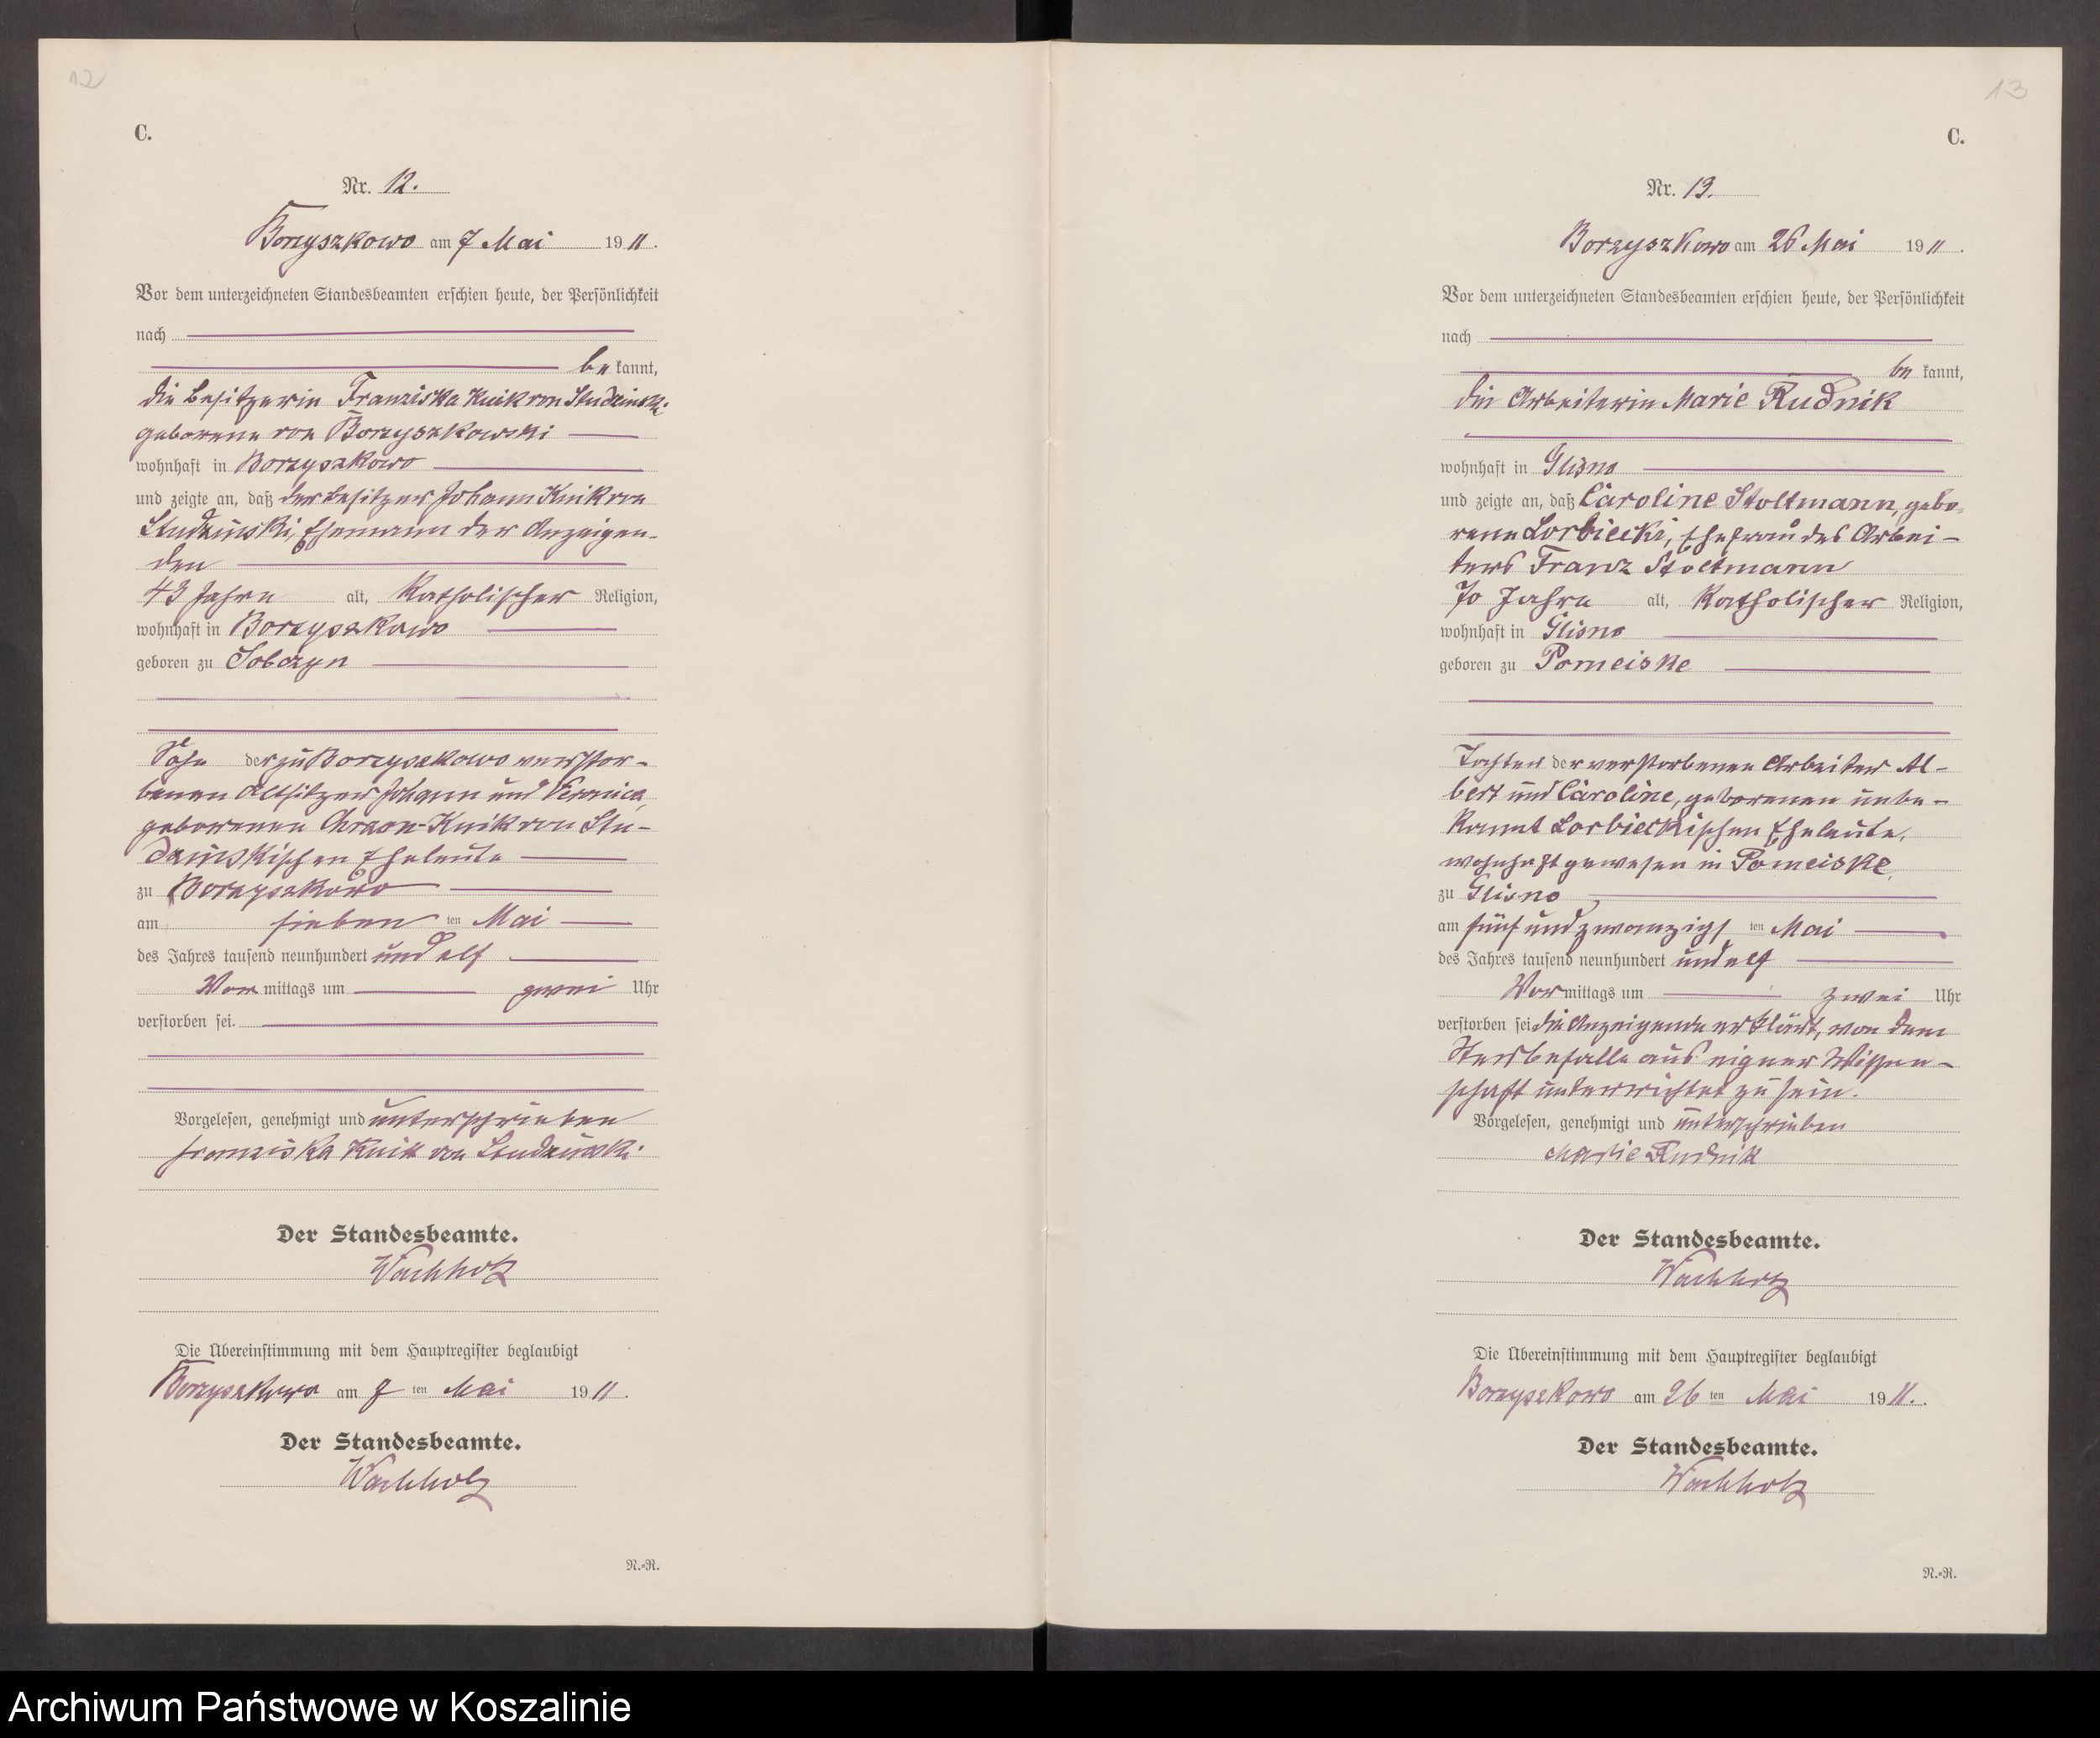 12
C.
Nr. 12.
Borzyszkowo am 7 Mai 1911.
Vor dem unterzeichneten Standesbeamten erschien heute, der Persönlichkeit
nach
be kannt,
die Besitzerin Franziska Knik von Studzinski
geborene von Borzyszkowski
wohnhaft in Borzyszkowo
und zeigte an, daß der Besitzer Johann Knik von
Studzinski, Ehemann der Anzeigen-
den
43 Jahre alt, Katholischer Religion,
wohnhaft in Borzyszkowo
geboren zu Sobczyn
Sohn der zu Borzyszkowo verstor-
benen Altsitzer Johann und Veronica,
geborenen Knik von Stu-
dzinskischen Eheleute
zu Borzyszkowo
am sieben ten Mai
des Jahres tausend neunhundert und elf
Vor mittags um zwei Uhr
verstorben sei.
Vorgelesen, genehmigt und unterschrieben
Franziska Knik von Studzinski
Der Standesbeamte.
Wachholz
Die Übereinstimmung mit dem Hauptregister beglaubigt
Borzyszkowo am 7 ten Mai 1911.
Der Standesbeamte.
Wachholz
N.-R.
13
C.
Nr. 13.
Borzyszkowo am 26 Mai 1911.
Vor dem unterzeichneten Standesbeamten erschien heute, der Persönlichkeit
nach
be kannt,
die Arbeiterin Marie Rudnik
wohnhaft in Glisno
und zeigte an, daß Caroline Stoltmann, gebo-
rene Lorbiecki, Ehefrau des Arbei-
ters Franz Stoltmann
70 Jahre alt, Katholischer Religion,
wohnhaft in Glisno
geboren zu Pomeiske
Tochter der verstorbenen Arbeiter Al-
bert und Caroline, geborenen unbe-
kannt Lorbieckischen Eheleute,
wohnhaft gewesen in Pomeiske,
zu Glisno
am fünf und zwanzigs ten Mai
des Jahres tausend neunhundert und elf
Vor mittags um zwei Uhr
verstorben sei die Anzeigende erklärt, von dem
Sterbefalle aus eigner Wissen-
schaft unterrichtet zu sein.
Vorgelesen, genehmigt und unterschrieben
Marie Rudnik
Der Standesbeamte.
Wachholz
Die Übereinstimmung mit dem Hauptregister beglaubigt
Borzyszkowo am 26 ten Mai 1911.
Der Standesbeamte.
Wachholz
N.-R.
Archiwum Państwowe w Koszalinie